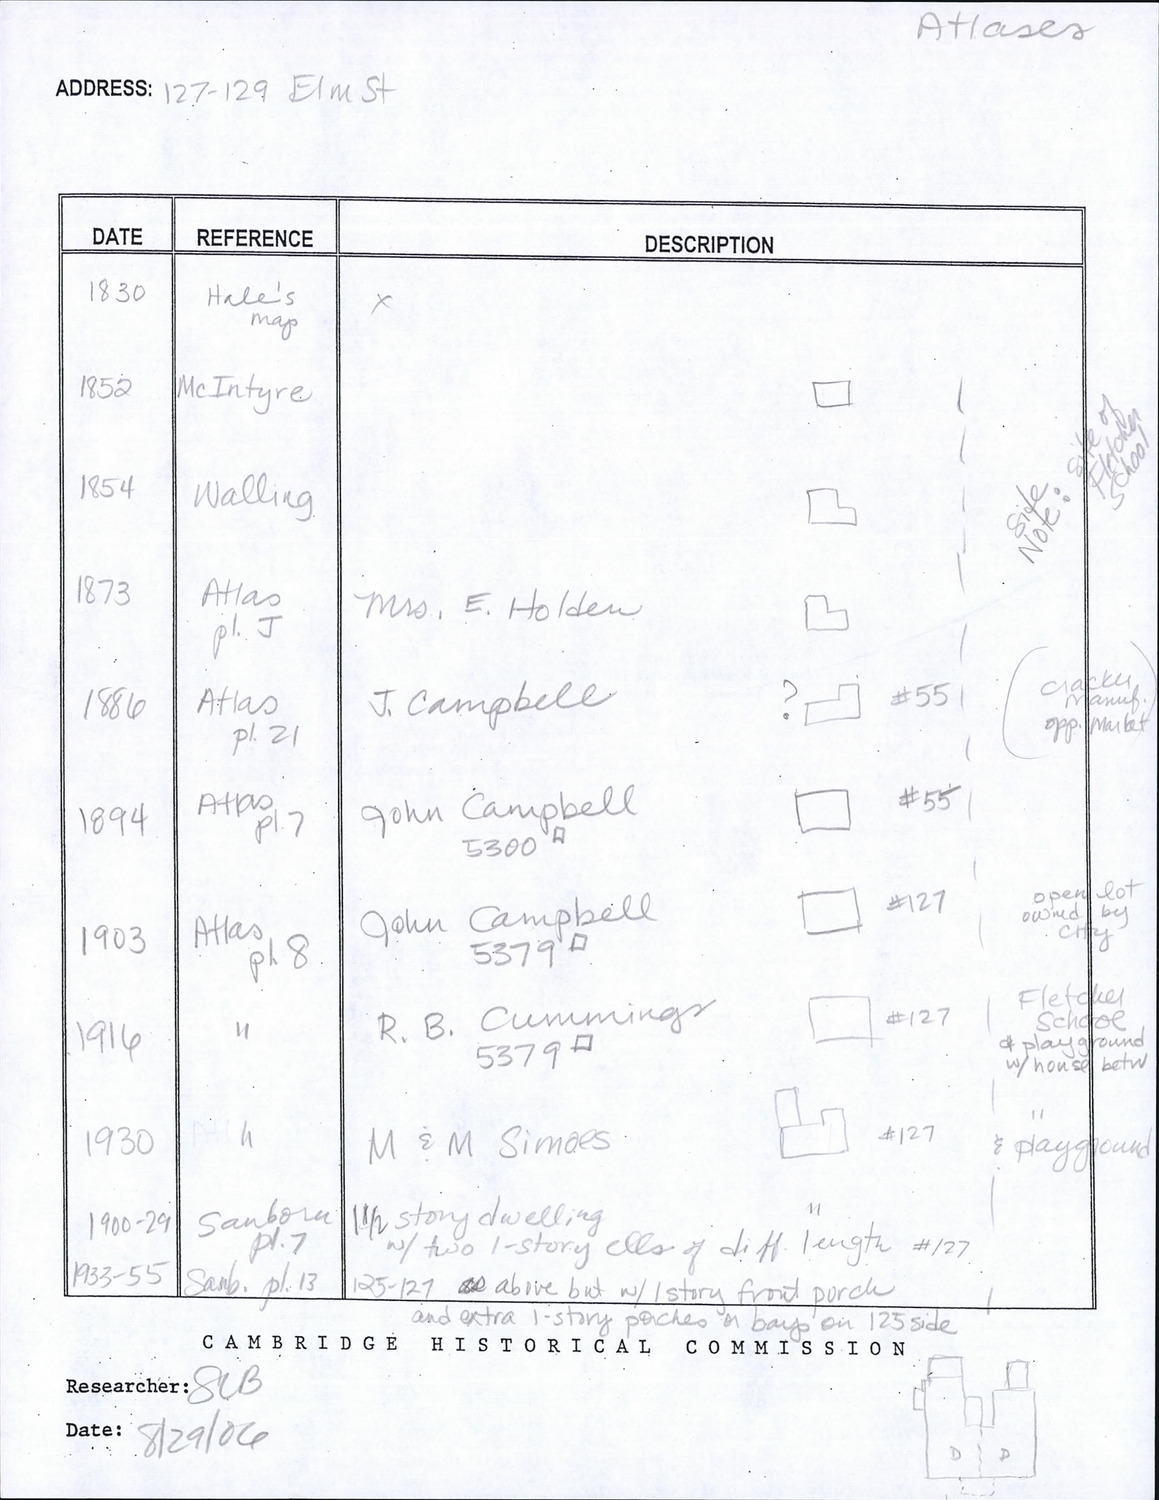 Atlases
ADDRESS: 127-129 Elm St
DATE REFERENCE DESCRIPTION
1830 Hale's map x
1852 McIntyre
1854 Walling
Side Note: Site of Fletcher School
1873 Atlas pl. J Mrs. E. Holden
1886 Atlas pl. 21 J. Campbell ? #55
(Cracker Manuf. opp. Market)
1894 Atlas pl. 7 John Campbell #55
5300
1903 Atlas pl. 8 John Campbell #127
5379
open lot owned by City
1916 " R. B. Cummings #127
5379
Fletcher School & playground w/ house betw
1930 " M & M Simoes #127
" & playground
1900-29 Sanborn pl. 7 1 1/2 story dwelling "
w/ two 1-story ells of diff. length #127
1933-55 Sanb. pl. 13 125-127 as above but w/ 1 story front porch
and extra 1-story porches or bays on 125 side
CAMBRIDGE HISTORICAL COMMISSION
Researcher:
Date: 8/29/06
D D